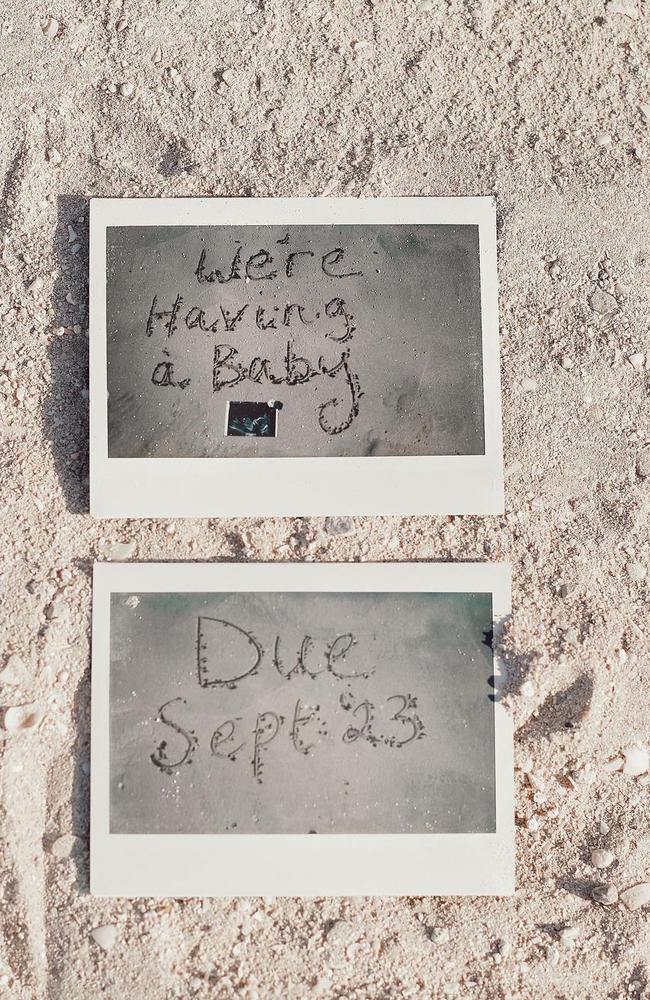 We're
Having
a Baby
Due
Sept '23